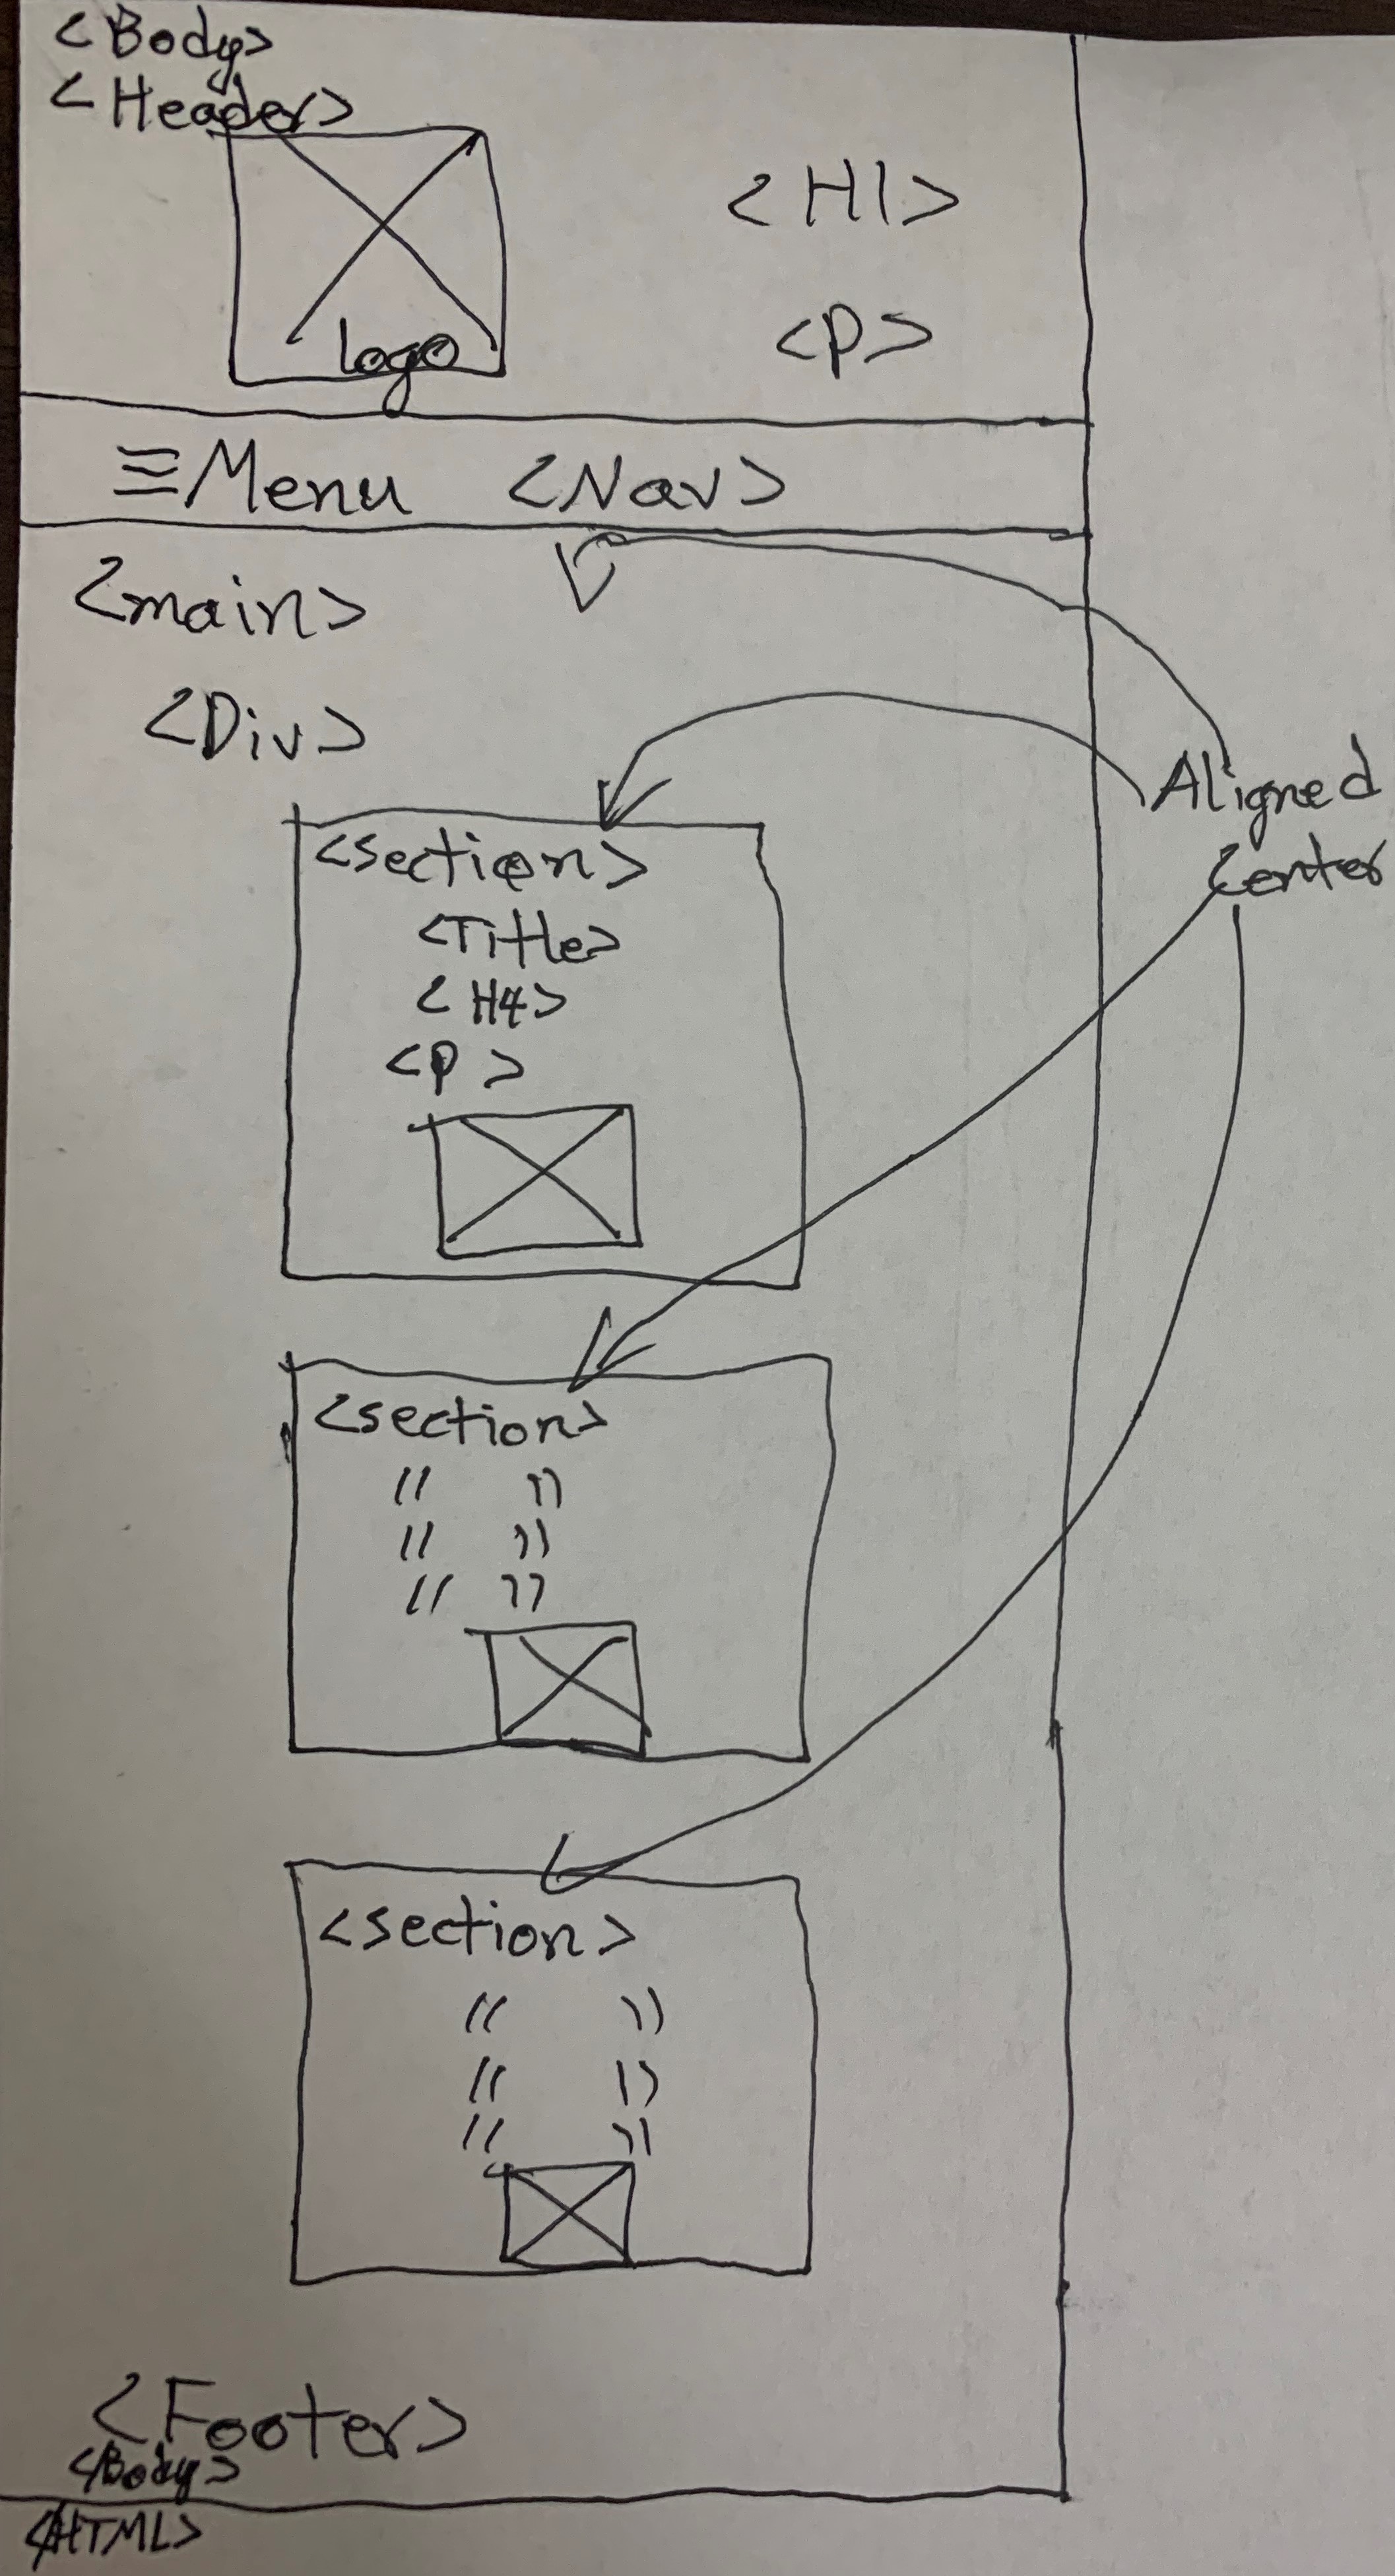 <Body>
<Header>
logo
<H1>
<P>
≡Menu <Nav>
<main>
<Div>
Aligned
Center
<section>
<Title>
<H4>
<P>
<section>
" "
" "
" "
<section>
" "
" "
" "
<Footer>
</Body>
</HTML>